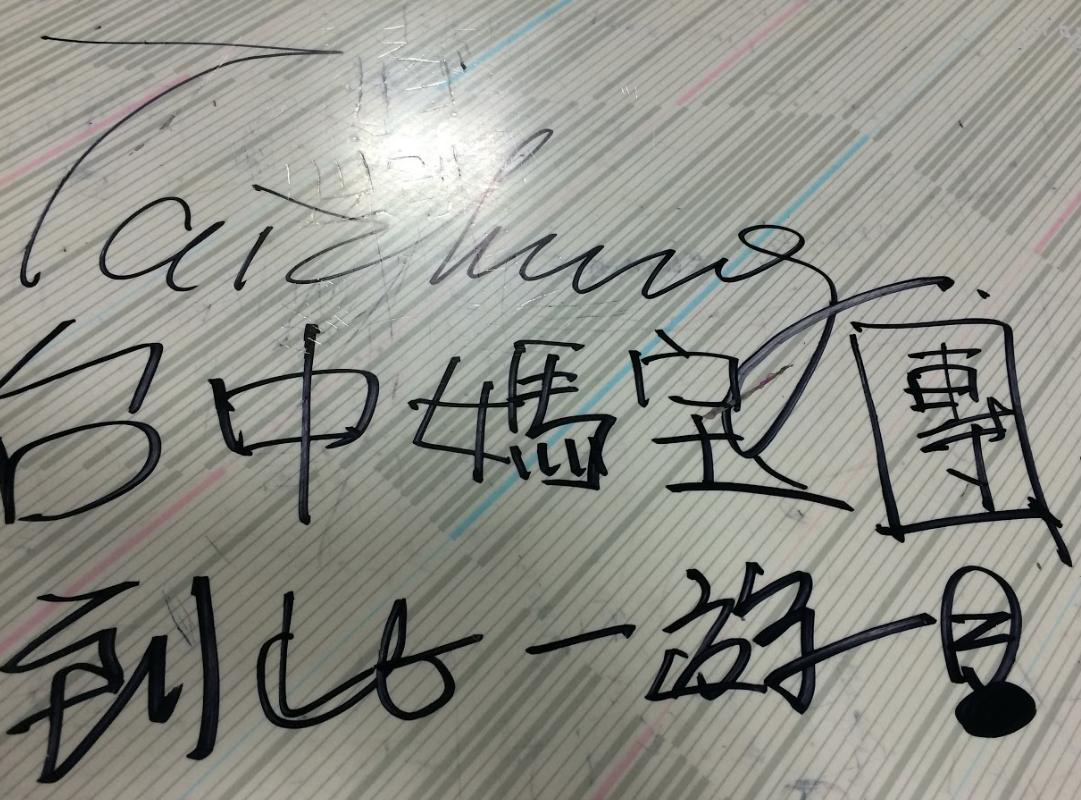 Taichung
台中媽宝團
到此一游!